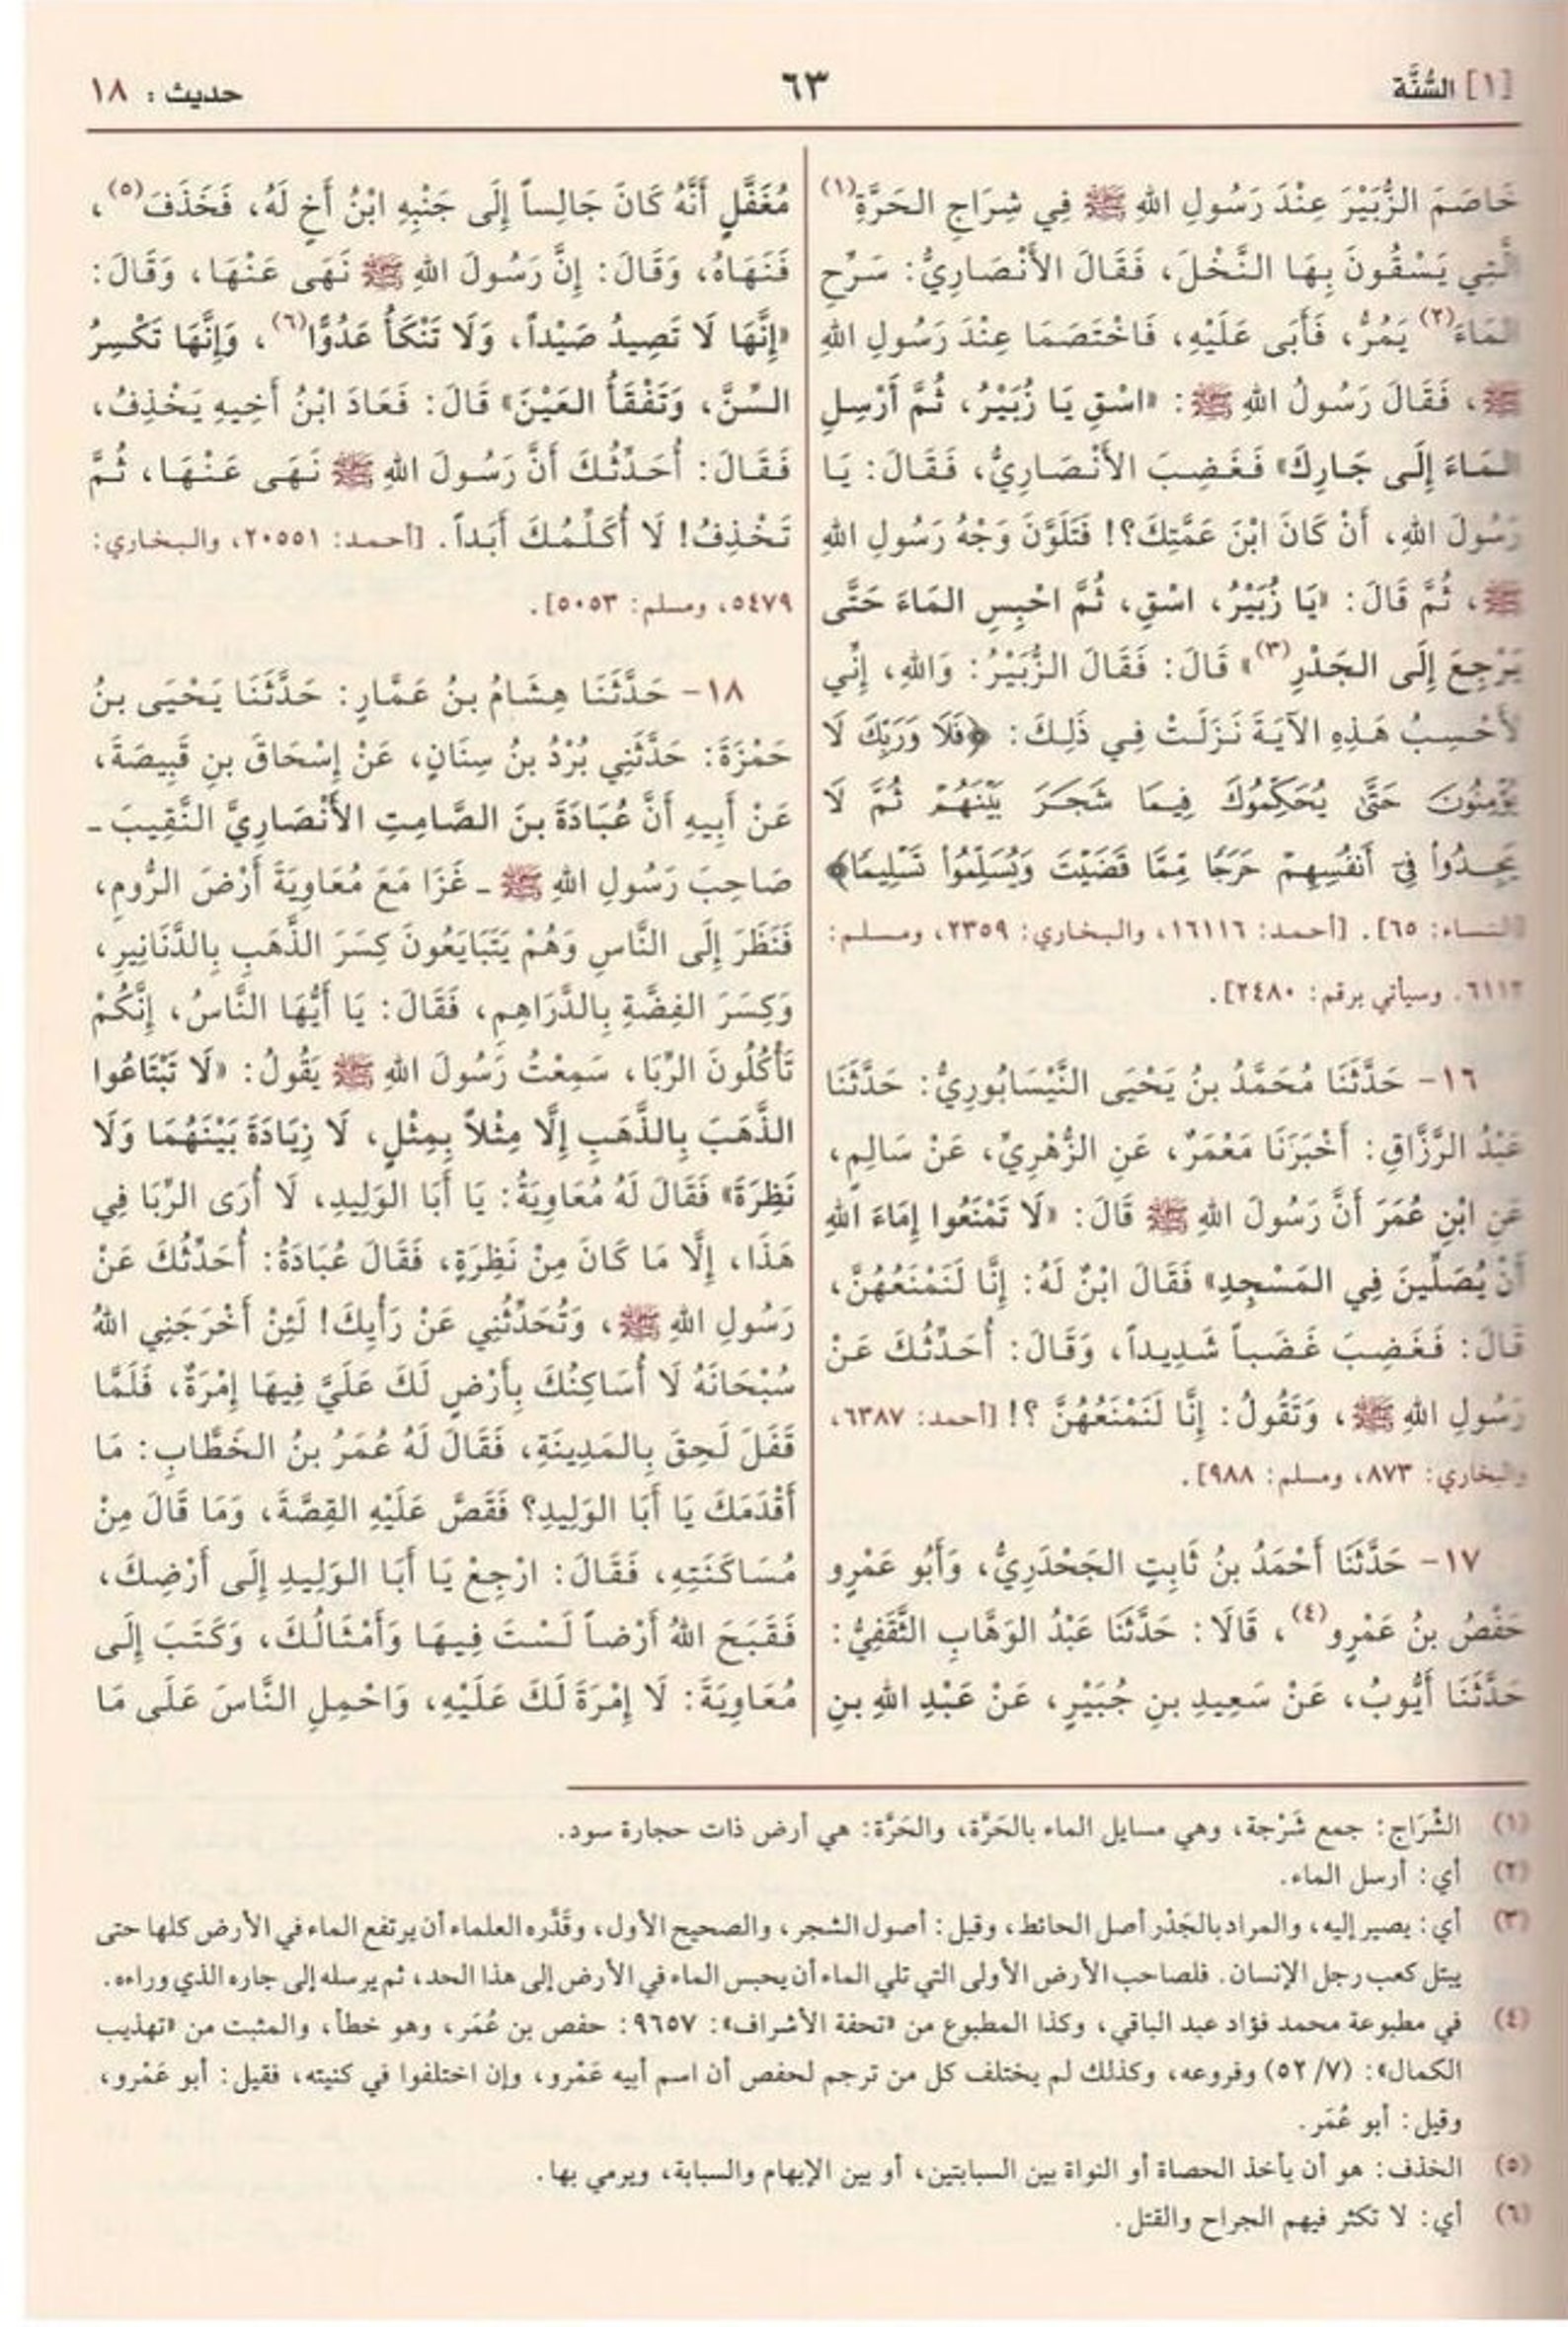 [١] السُّنَّة
٦٣
حديث : ١٨
خَاصَمَ الزُّبَيْرَ عِنْدَ رَسُولِ اللهِ ﷺ فِي شِرَاجِ الحَرَّةِ(١)
الَّتِي يَسْقُونَ بِهَا النَّخْلَ، فَقَالَ الأَنْصَارِيُّ: سَرِّحِ
المَاءَ(٢) يَمُرُّ، فَأَبَى عَلَيْهِ، فَاخْتَصَمَا عِنْدَ رَسُولِ اللهِ
ﷺ، فَقَالَ رَسُولُ اللهِ ﷺ: «اسْقِ يَا زُبَيْرُ، ثُمَّ أَرْسِلِ
المَاءَ إِلَى جَارِكَ» فَغَضِبَ الأَنْصَارِيُّ، فَقَالَ: يَا
رَسُولَ اللهِ، أَنْ كَانَ ابْنَ عَمَّتِكَ؟! فَتَلَوَّنَ وَجْهُ رَسُولِ اللهِ
ﷺ، ثُمَّ قَالَ: «يَا زُبَيْرُ، اسْقِ، ثُمَّ احْبِسِ المَاءَ حَتَّى
يَرْجِعَ إِلَى الجَدْرِ(٣)» قَالَ: فَقَالَ الزُّبَيْرُ: وَاللهِ، إِنِّي
لَأَحْسِبُ هَذِهِ الآيَةَ نَزَلَتْ فِي ذَلِكَ: ﴿فَلَا وَرَبِّكَ لَا
يُؤْمِنُونَ حَتَّىٰ يُحَكِّمُوكَ فِيمَا شَجَرَ بَيْنَهُمْ ثُمَّ لَا
يَجِدُوا۟ فِىٓ أَنفُسِهِمْ حَرَجًا مِّمَّا قَضَيْتَ وَيُسَلِّمُوا۟ تَسْلِيمًا﴾
[النساء: ٦٥]. [أحمد: ١٦١١٦، والبخاري: ٢٣٥٩، ومسلم:
٦١١٢. وسيأتي برقم: ٢٤٨٠].
١٦- حَدَّثَنَا مُحَمَّدُ بنُ يَحْيَى النَّيْسَابُورِيُّ: حَدَّثَنَا
عَبْدُ الرَّزَّاقِ: أَخْبَرَنَا مَعْمَرٌ، عَنِ الزُّهْرِيِّ، عَنْ سَالِمٍ،
عَنِ ابْنِ عُمَرَ أَنَّ رَسُولَ اللهِ ﷺ قَالَ: «لَا تَمْنَعُوا إِمَاءَ اللهِ
أَنْ يُصَلِّينَ فِي المَسْجِدِ» فَقَالَ ابْنٌ لَهُ: إِنَّا لَنَمْنَعُهُنَّ،
قَالَ: فَغَضِبَ غَضَباً شَدِيداً، وَقَالَ: أُحَدِّثُكَ عَنْ
رَسُولِ اللهِ ﷺ، وَتَقُولُ: إِنَّا لَنَمْنَعُهُنَّ ؟! [أحمد: ٦٣٨٧،
والبخاري: ٨٧٣، ومسلم: ٩٨٨].
١٧- حَدَّثَنَا أَحْمَدُ بنُ ثَابِتٍ الجَحْدَرِيُّ، وَأَبُو عَمْرٍو
حَفْصُ بنُ عَمْرٍو(٤)، قَالَا: حَدَّثَنَا عَبْدُ الوَهَّابِ الثَّقَفِيُّ:
حَدَّثَنَا أَيُّوبُ، عَنْ سَعِيدِ بنِ جُبَيْرٍ، عَنْ عَبْدِ اللهِ بنِ
مُغَفَّلٍ أَنَّهُ كَانَ جَالِساً إِلَى جَنْبِهِ ابْنُ أَخٍ لَهُ، فَخَذَفَ(٥)،
فَنَهَاهُ، وَقَالَ: إِنَّ رَسُولَ اللهِ ﷺ نَهَى عَنْهَا، وَقَالَ:
«إِنَّهَا لَا تَصِيدُ صَيْداً، وَلَا تَنْكَأُ عَدُوًّا(٦)، وَإِنَّهَا تَكْسِرُ
السِّنَّ، وَتَفْقَأُ العَيْنَ» قَالَ: فَعَادَ ابْنُ أَخِيهِ يَخْذِفُ،
فَقَالَ: أُحَدِّثُكَ أَنَّ رَسُولَ اللهِ ﷺ نَهَى عَنْهَا، ثُمَّ
تَخْذِفُ! لَا أُكَلِّمُكَ أَبَداً. [أحمد: ٢٠٥٥١، والبخاري:
٥٤٧٩، ومسلم: ٥٠٥٣].
١٨- حَدَّثَنَا هِشَامُ بنُ عَمَّارٍ: حَدَّثَنَا يَحْيَى بنُ
حَمْزَةَ: حَدَّثَنِي بُرْدُ بنُ سِنَانٍ، عَنْ إِسْحَاقَ بنِ قَبِيصَةَ،
عَنْ أَبِيهِ أَنَّ عُبَادَةَ بنَ الصَّامِتِ الأَنْصَارِيَّ النَّقِيبَ -
صَاحِبَ رَسُولِ اللهِ ﷺ - غَزَا مَعَ مُعَاوِيَةَ أَرْضَ الرُّومِ،
فَنَظَرَ إِلَى النَّاسِ وَهُمْ يَتَبَايَعُونَ كِسَرَ الذَّهَبِ بِالدَّنَانِيرِ،
وَكِسَرَ الفِضَّةِ بِالدَّرَاهِمِ، فَقَالَ: يَا أَيُّهَا النَّاسُ، إِنَّكُمْ
تَأْكُلُونَ الرِّبَا، سَمِعْتُ رَسُولَ اللهِ ﷺ يَقُولُ: «لَا تَبْتَاعُوا
الذَّهَبَ بِالذَّهَبِ إِلَّا مِثْلاً بِمِثْلٍ، لَا زِيَادَةَ بَيْنَهُمَا وَلَا
نَظِرَةَ» فَقَالَ لَهُ مُعَاوِيَةُ: يَا أَبَا الوَلِيدِ، لَا أُرَى الرِّبَا فِي
هَذَا، إِلَّا مَا كَانَ مِنْ نَظِرَةٍ، فَقَالَ عُبَادَةُ: أُحَدِّثُكَ عَنْ
رَسُولِ اللهِ ﷺ، وَتُحَدِّثُنِي عَنْ رَأْيِكَ! لَئِنْ أَخْرَجَنِي اللهُ
سُبْحَانَهُ لَا أُسَاكِنُكَ بِأَرْضٍ لَكَ عَلَيَّ فِيهَا إِمْرَةٌ، فَلَمَّا
قَفَلَ لَحِقَ بِالمَدِينَةِ، فَقَالَ لَهُ عُمَرُ بنُ الخَطَّابِ: مَا
أَقْدَمَكَ يَا أَبَا الوَلِيدِ؟ فَقَصَّ عَلَيْهِ القِصَّةَ، وَمَا قَالَ مِنْ
مُسَاكَنَتِهِ، فَقَالَ: ارْجِعْ يَا أَبَا الوَلِيدِ إِلَى أَرْضِكَ،
فَقَبَحَ اللهُ أَرْضاً لَسْتَ فِيهَا وَأَمْثَالُكَ، وَكَتَبَ إِلَى
مُعَاوِيَةَ: لَا إِمْرَةَ لَكَ عَلَيْهِ، وَاحْمِلِ النَّاسَ عَلَى مَا
(١) الشِّرَاج: جمع شَرْجة، وهي مسايل الماء بالحَرَّة، والحَرَّة: هي أرض ذات حجارة سود.
(٢) أي: أرسل الماء.
(٣) أي: يصير إليه، والمراد بالجَدْر أصل الحائط، وقيل: أصول الشجر، والصحيح الأول، وقَدَّره العلماء أن يرتفع الماء في الأرض كلها حتى
يبتل كعب رجل الإنسان. فلصاحب الأرض الأولى التي تلي الماء أن يحبس الماء في الأرض إلى هذا الحد، ثم يرسله إلى جاره الذي وراءه.
(٤) في مطبوعة محمد فؤاد عبد الباقي، وكذا المطبوع من «تحفة الأشراف»: ٩٦٥٧: حفص بن عُمَر، وهو خطأ، والمثبت من «تهذيب
الكمال»: (٧/ ٥٢) وفروعه، وكذلك لم يختلف كل من ترجم لحفص أن اسم أبيه عَمْرو، وإن اختلفوا في كنيته، فقيل: أبو عَمْرو،
وقيل: أبو عُمَر.
(٥) الخذف: هو أن يأخذ الحصاة أو النواة بين السبابتين، أو بين الإبهام والسبابة، ويرمي بها.
(٦) أي: لا تكثر فيهم الجراح والقتل.